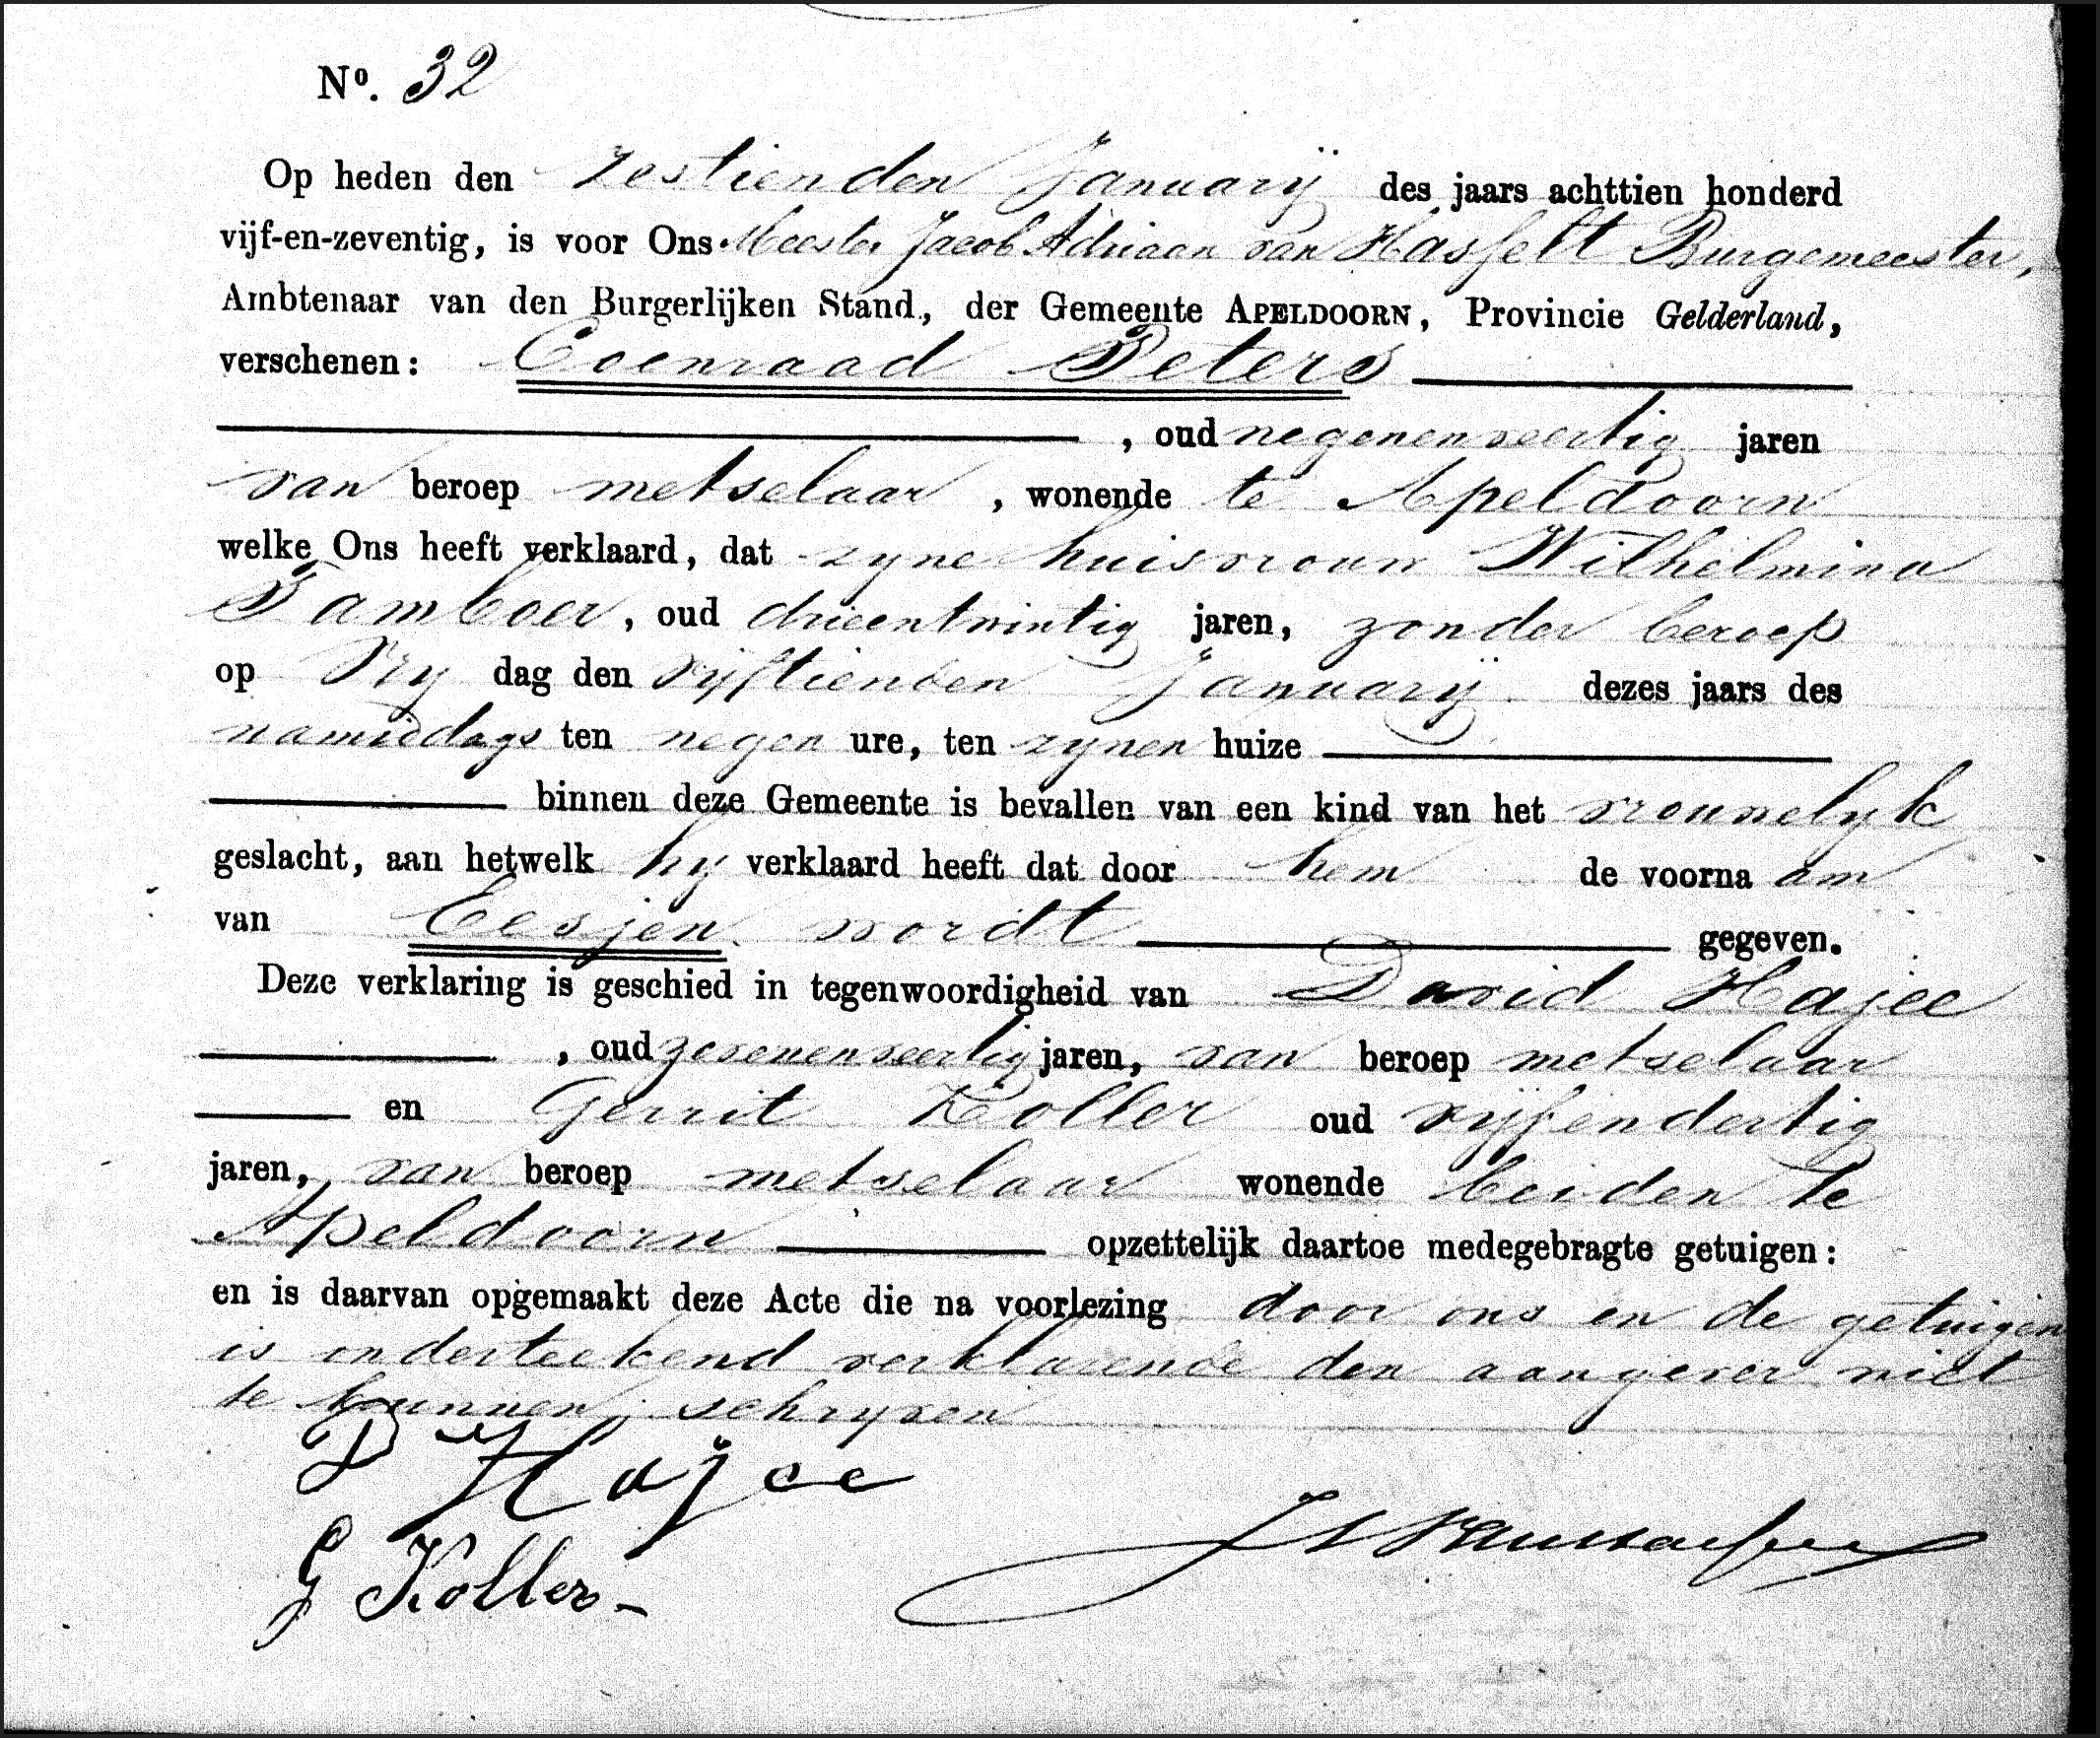 Nº. 32
Op heden den zestienden Januarij des jaars achttien honderd
vijf-en-zeventig, is voor Ons Meester Jacob Adriaan van Hasselt Burgemeester,
Ambtenaar van den Burgerlijken Stand, der Gemeente APELDOORN, Provincie Gelderland,
verschenen: Coenraad Peters
, oud negenenveertig jaren
van beroep metselaar, wonende te Apeldoorn
welke Ons heeft verklaard, dat zyne huisvrouw Wilhelmina
Tamboer, oud drieentwintig jaren, zonder beroep
op Vry dag den vijftienden Januarij dezes jaars des
namiddags ten negen ure, ten zynen huize
binnen deze Gemeente is bevallen van een kind van het vrouwelyk
geslacht, aan hetwelk hy verklaard heeft dat door hem de voorna am
van Eesjen wordt gegeven.
Deze verklaring is geschied in tegenwoordigheid van David Hajee
, oud zevenenveertig jaren, van beroep metselaar
en Gerrit Koller oud vijfendertig
jaren, van beroep metselaar wonende beiden te
Apeldoorn opzettelijk daartoe medegebragte getuigen:
en is daarvan opgemaakt deze Acte die na voorlezing door ons en de getuigen
is onderteekend verklarende den aangever niet
te kunnen schryven
D Hajee
G Koller
JAvanHasselt